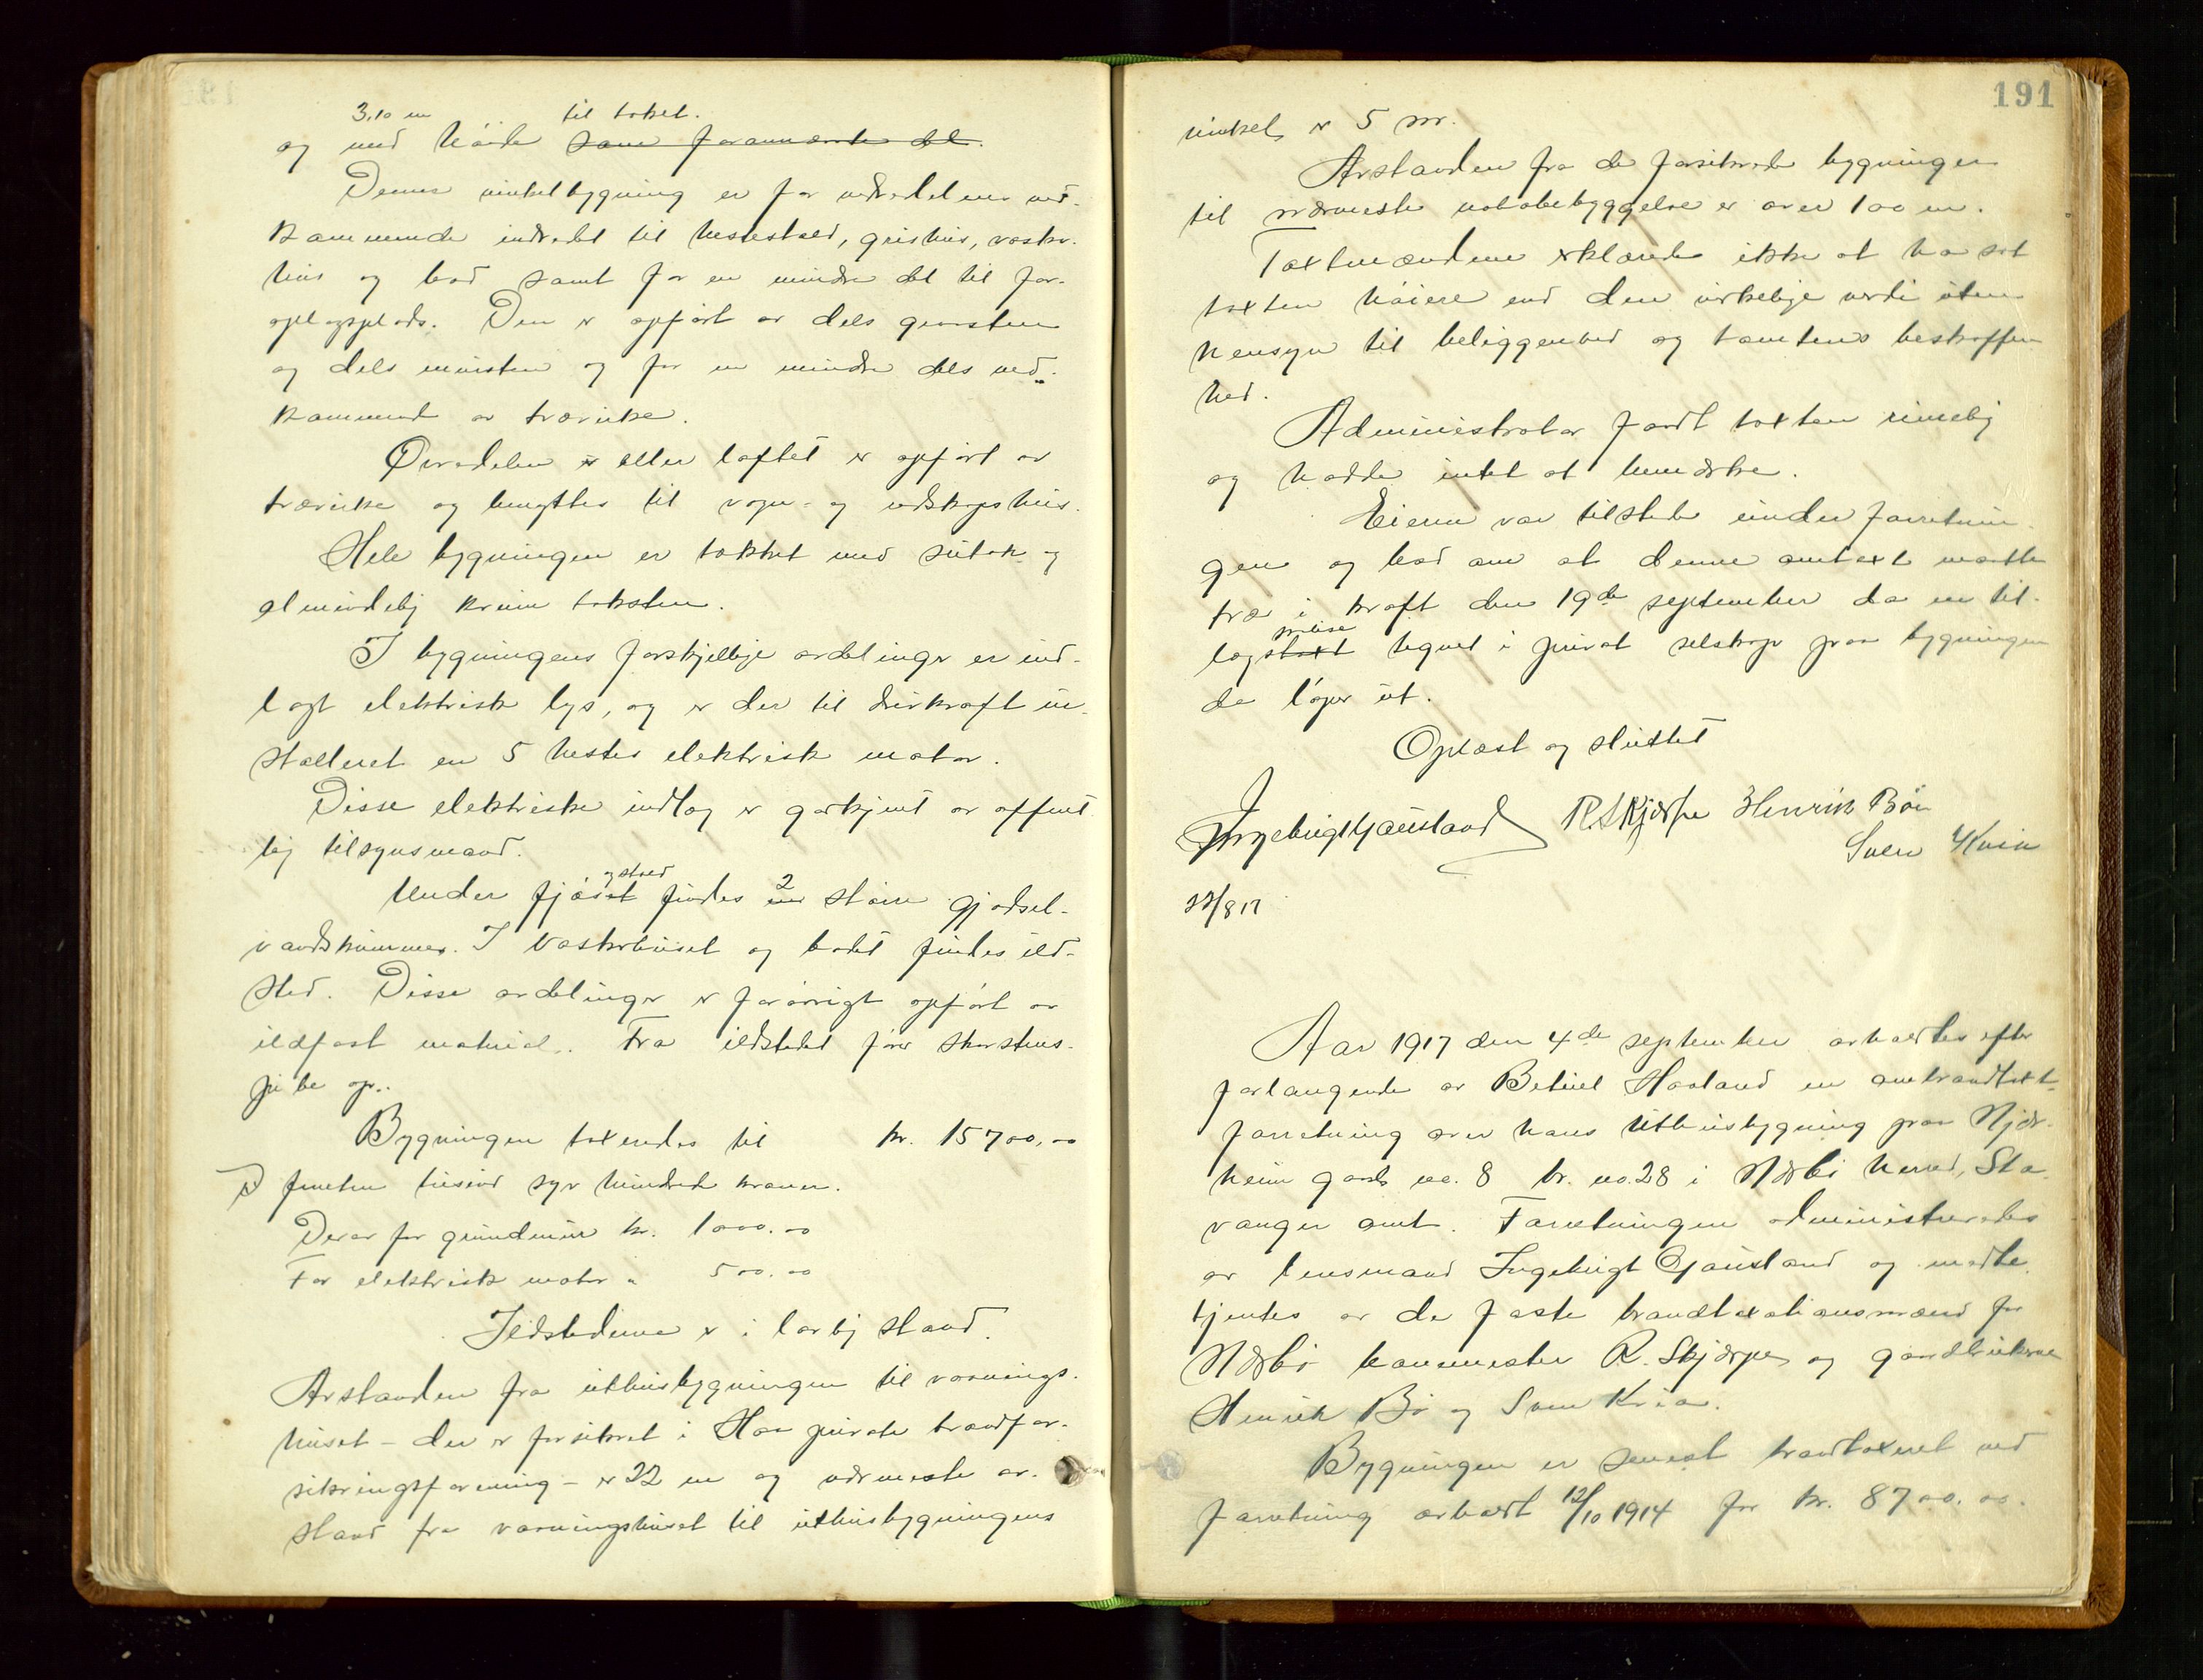 3,10 m til taket.
og med høide som forannævnte del.
Denne vinkelbygning er for nedredelens ved-
kommende indredet til hestestald, grishus, vaske-
hus og bad samt for en mindre del til for-
oplagsplads. Den er opført av dels graasten
og dels mursten og for en mindre dels ved-
kommend av trævirke.
Øvredelen er eller loftet er opført av
trævirke og benyttes til vogn- og redskapshus.
Hele bygningen er tækket med sutak og
almindelig krum taksten.
I bygningens forskjellige avdelinger er ind-
lagt elektrisk lys, og er der til drivkraft in-
stalleret en 5 hestes elektrisk motor.
Disse elektriske indlag er godkjent av offent
lig tilsynsmand.
og stald 2
Under fjøset findes en større gjødsel-
vandskummer. I vaskehuset og badet findes ild-
sted. Disse avdelinger er forøvrigt opført av
ildfast material. Fra ildstedet fører skorstens-
pibe op.
Bygningen taxeredes til kr. 15700,00
femten tusind syv hundrede kroner.
Derav for grundmur kr. 1000.00
For elektrisk motor " 500.00
Ildstederne er i lovlig stand.
Avstanden fra uthusbygningen til vaanings-
huset - der er forsikret i Haa private brandfor-
sikringsforening - er 22 m og nærmeste av-
stand fra vaaningshuset til uthusbygningens
191
vinkel er 5 m.
Avstanden fra de forsikrede bygninger
til nærmeste nabobebyggelse er over 100 m.
Taxtmændene erklærede ikke at ha sat
taxten høiere end den virkelige verdi uten
hensyn til beliggenhed og tomtens beskaffen
hed.
Administrator fandt taxten rimelig
og hadde intet at bemærke.
Eieren var tilstede under forretnin-
gen og bad om at denne omtaxt maatte
træ i kraft den 19de september da en til-
polise
lægstaxt tegnet i privat selskap paa bygningen
da løper ut.
Oplæst og sluttet
Ingebrigt Gausland R. Skjærpe Henrik Bøe
Sven Kvia
22/8 17
Aar 1917 den 4de september avholdtes efter
forlangende av Betuel Haaland en ombrandtaxt-
forretning over hans uthusbygning paa Njær-
heim gards no. 8 br. no. 28 i Nærbø herred, Sta-
vanger amt. Forretningen administreredes
av lensmand Ingebrigt Gausland og medbe
tjentes av de faste brandtaxationsmænd for
Nærbø R. Skjærpe og gardbrukerne
Henrik Bø og Sven Kvia.
Bygningen er senest brandtaxeret ved
forretning avholdt 12/10 1914 for kr. 8700.00.